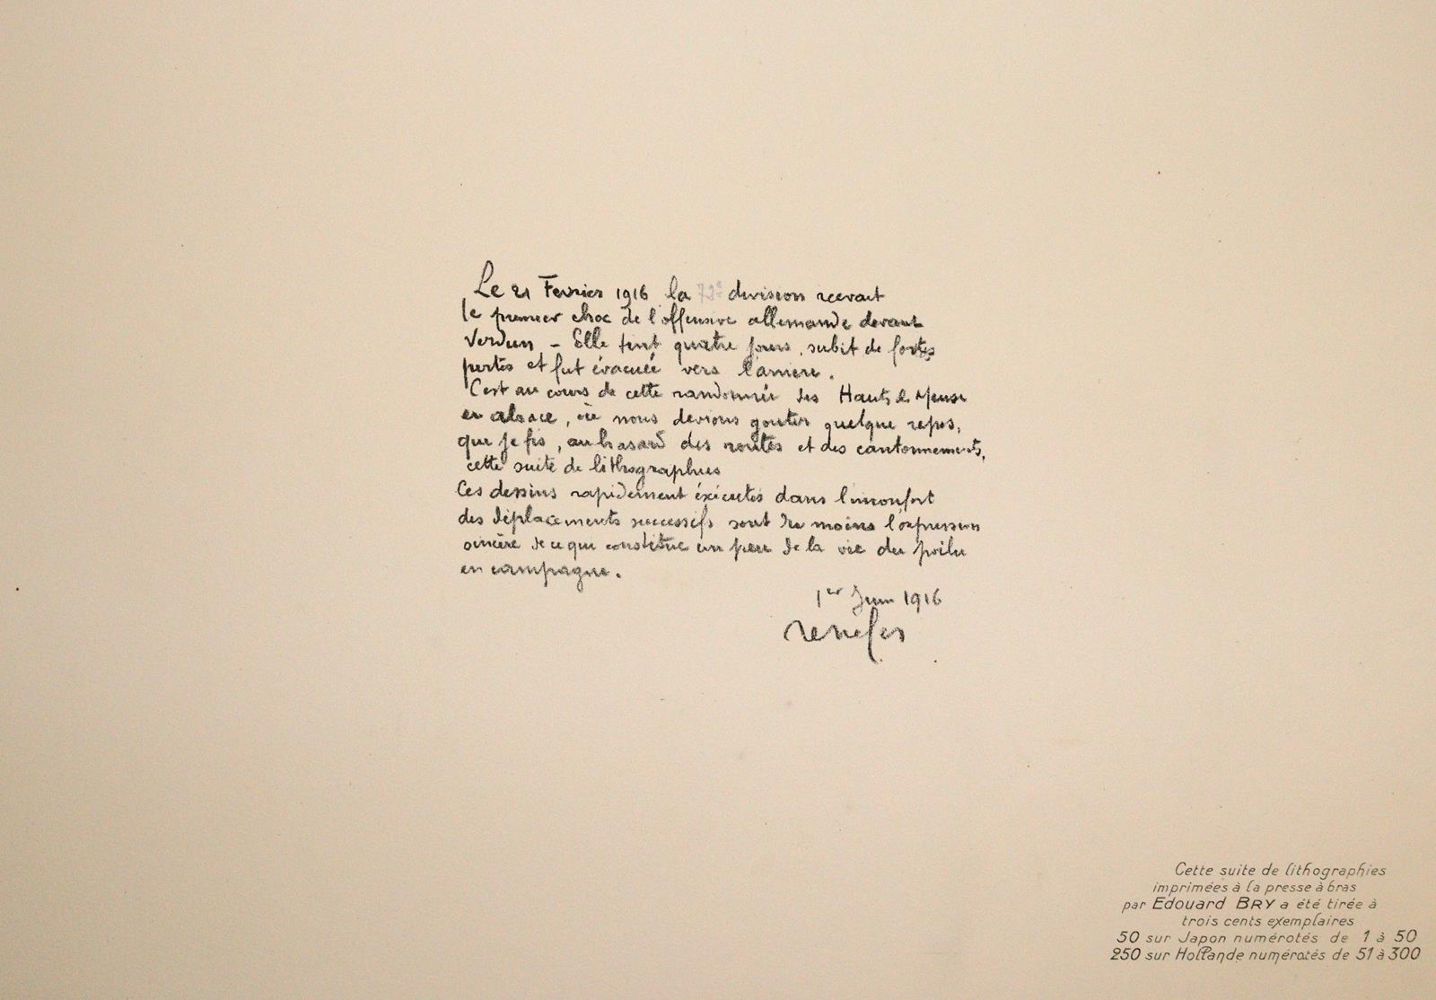 Le 21 Fevrier 1916 la 72e division recevait
le premier choc de l'offensive allemande devant
Verdun - Elle tint quatre jours, subit de fortes
pertes et fut évacuée vers l'arrière.
C'est au cours de cette randonnée des Hauts de Meuse
en alsace, où nous devions gouter quelque repos,
que je fis, au hasard des routes et des cantonnements,
cette suite de lithographies
Ces dessins rapidement éxécutés dans l'inconfort
des déplacements successifs sont du moins l'expression
sincère de ce qui constitue un peu de la vie du poilu
en campagne.
1er Juin 1916
renefer
Cette suite de lithographies
imprimées à la presse à bras
par Edouard BRY a été tirée à
trois cents exemplaires
50 sur Japon numérotés de 1 à 50
250 sur Hollande numérotés de 51 à 300